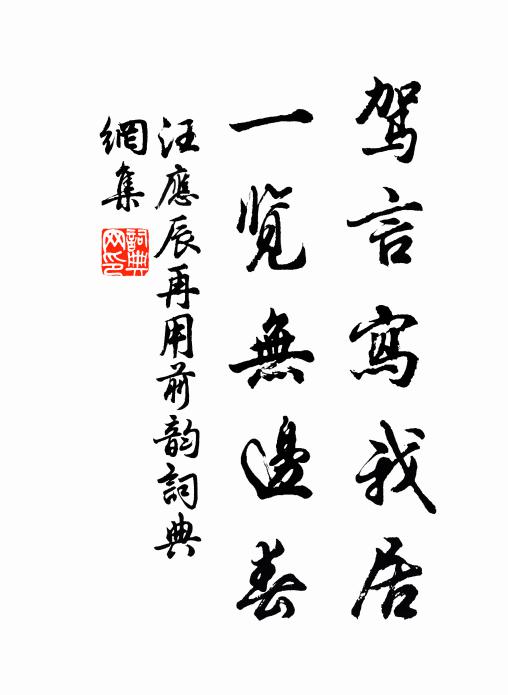 駕言寫我居
一覽無邊春
汪應辰再用前韵詞典
網集
詞典
网印